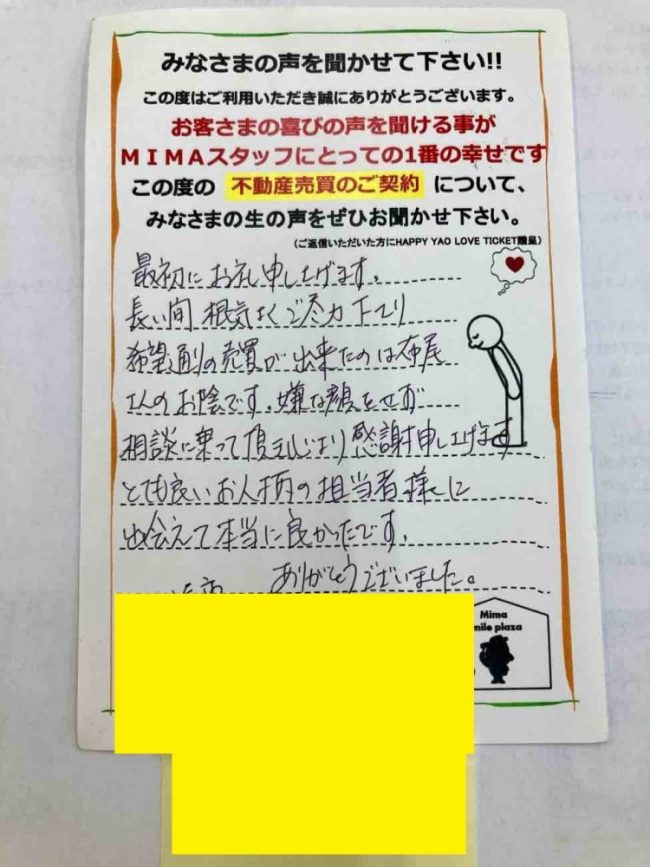 みなさまの声を聞かせて下さい!!
この度はご利用いただき誠にありがとうございます。
お客さまの喜びの声を聞ける事が
MIMAスタッフにとっての1番の幸せです
この度の 不動産売買のご契約 について、
みなさまの生の声をぜひお聞かせ下さい。
(ご返信いただいた方にHAPPY YAO LOVE TICKET贈呈)
最初にお礼申し上げます。
長い間 根気よくご尽力下さり
希望通りの売買が出来たのは布尾
さんのお陰です。嫌な顔をせず
相談に乗って頂き心より感謝申し上げます
とても良いお人柄の担当者様に
出会えて本当に良かったです。
ありがとうございました。
Mima
mile plaza